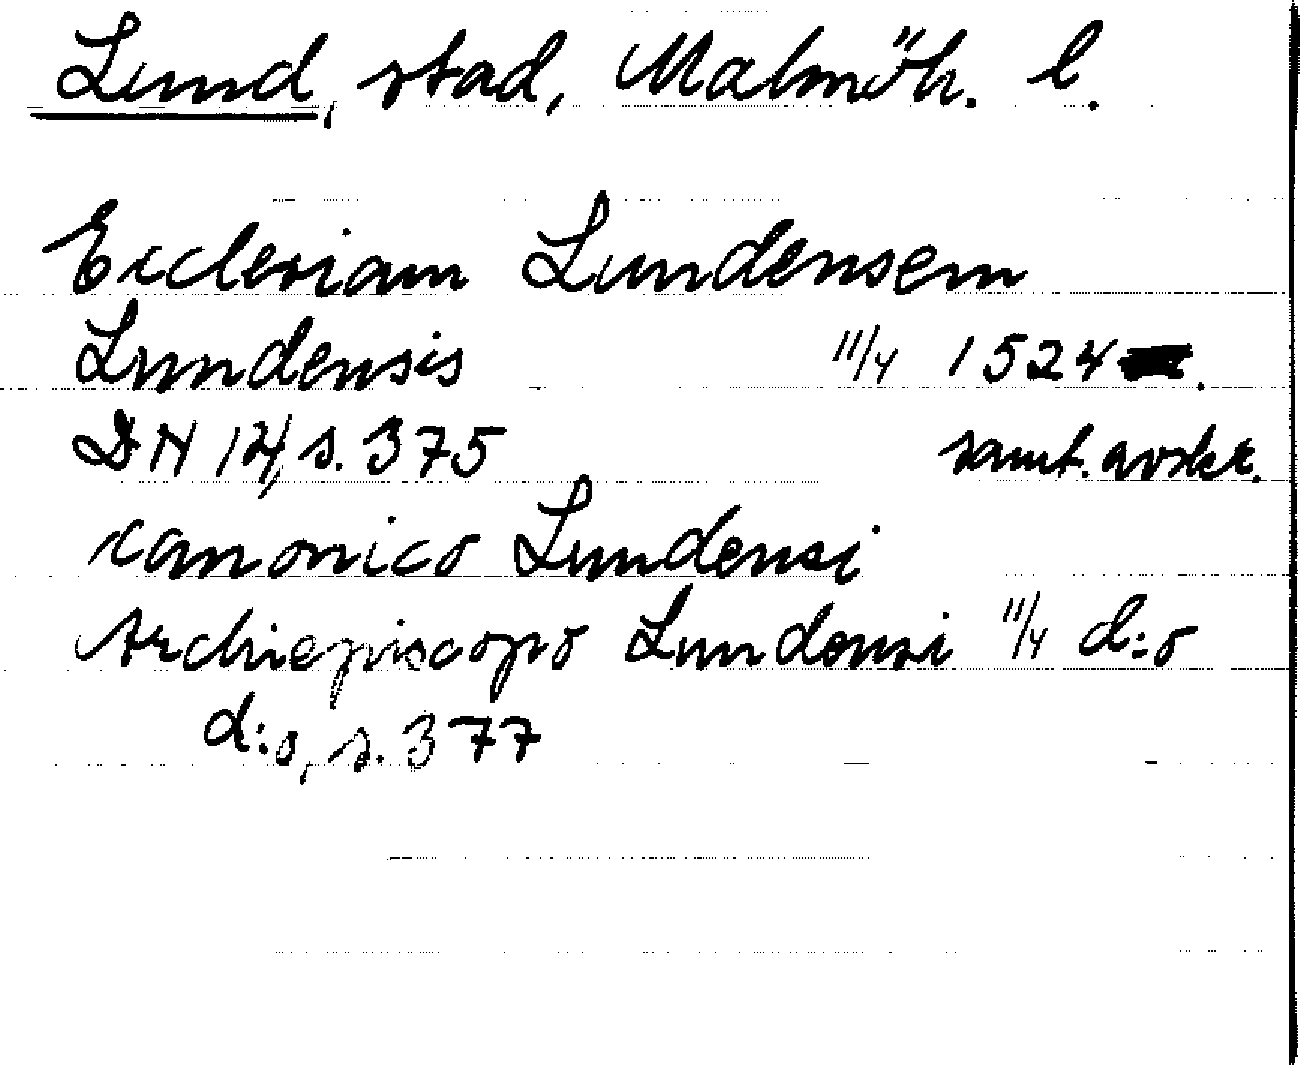 Lund, stad, Malmöh. l.
Ecclesiam Lundensem
Lundensis 11/4 1524.
DN 14, s. 375 samt. avskr.
canonico Lundensi
Archiepiscopo Lundensi 11/4 d:o
d:o, s. 377